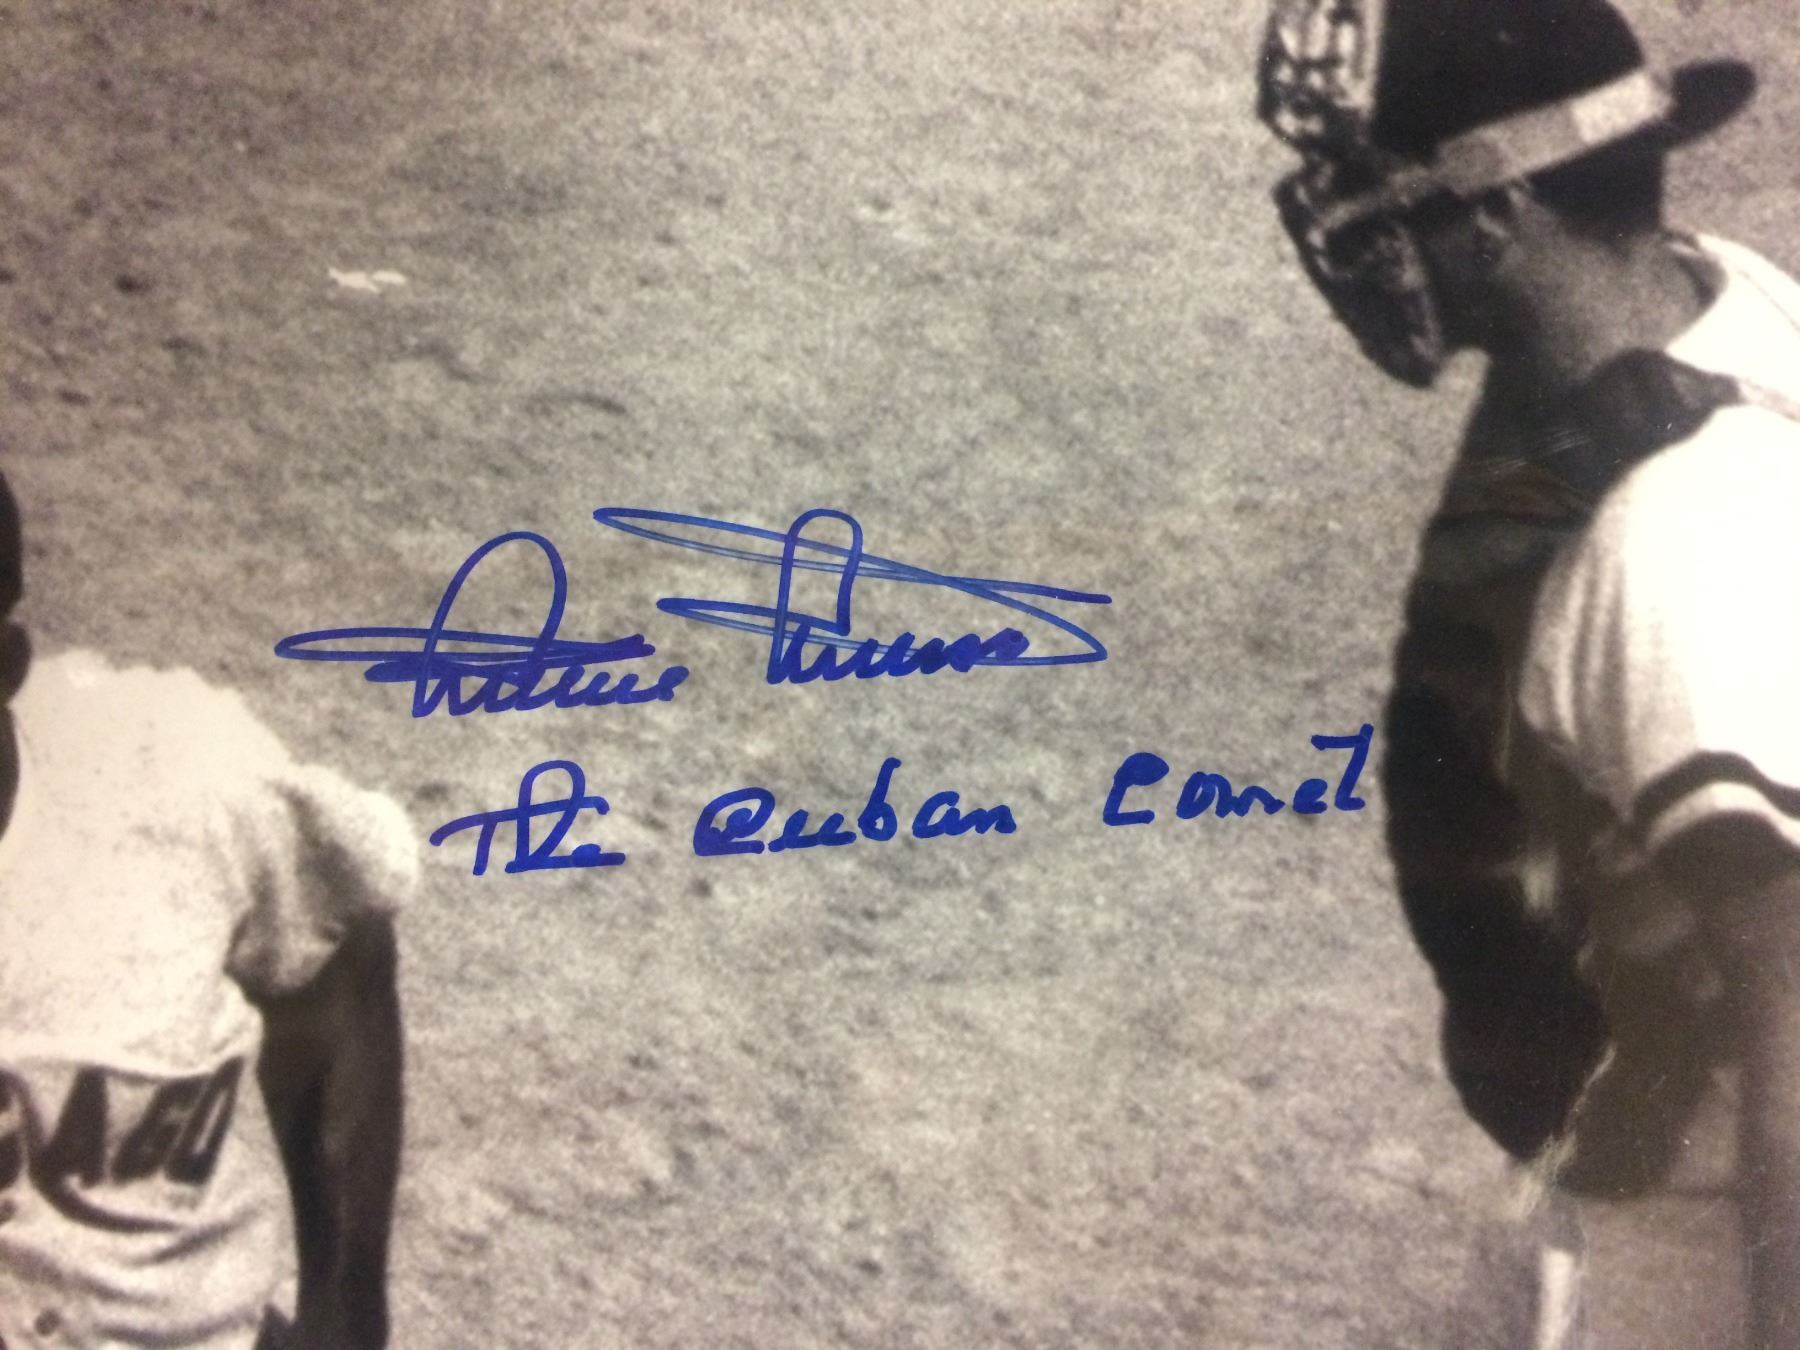 Minnie Minoso
The Cuban Comet
AGO